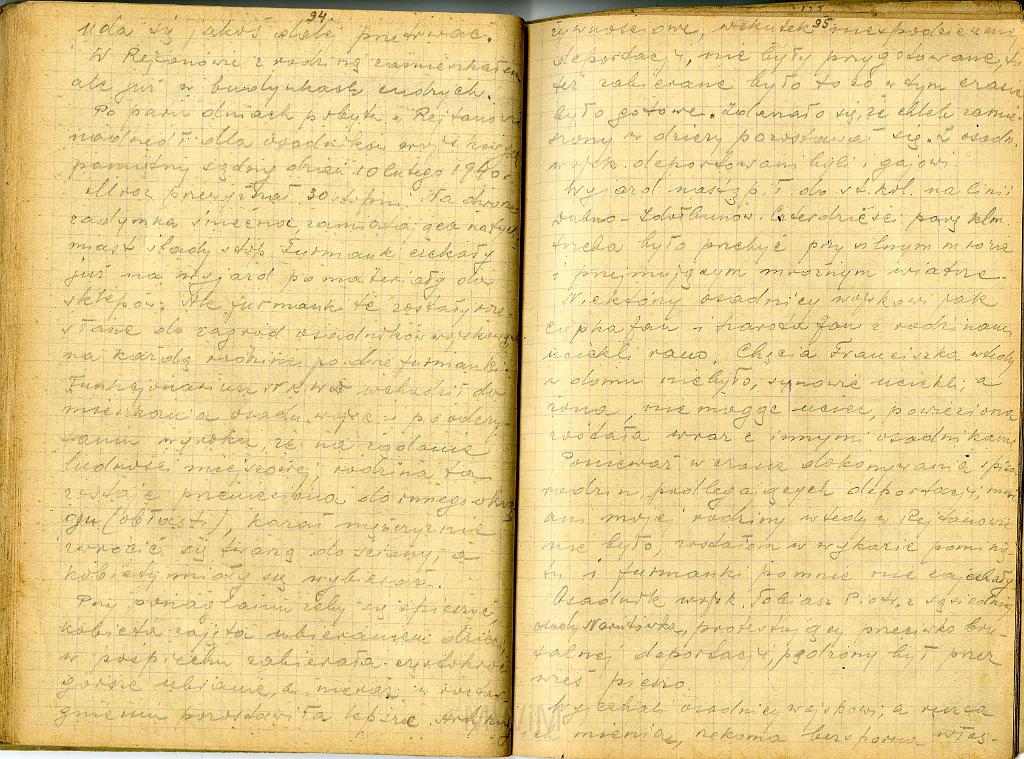 94.
Uda się jakoś dalej przetrwać.
W Rejtanowie z rodziną zamieszkałem
ale już w budynkach cudzych.
Po paru dniach pobytu w Rejtanowie
nadszedł dla osadników wojskowych
pamiętny sądny dzień 10 lutego 1940 r.
Mróz przewyższał 30 stopni. Na dworze
zadymka śnieżna, zamiatająca natych
miast ślady stóp. Furmanki czekały
już na wyjazd po materiały do
sklepów. Ale furmanki te zostały roze-
słane do zagród osadników wojskowych
na każdą rodzinę po dwie furmanki.
Funkcjonariusz N.K.W.D. wchodził do
mieszkania osadn. wojsk. i po odczy-
taniu wyroku, że na żądanie
ludności miejscowej, rodzina ta
zostaje przeniesiona do innego okrę
gu (obłasti), kazał mężczyźnie
zwrócić się twarzą do ściany, a
kobiety miały się wybierać.
Przy ponaglaniu żeby się spieszyć,
kobieta zajęta ubieraniem dzieci,
w pośpiechu zabierała częstokroć
gorsze ubranie, a nieraz w roztar-
gnieniu pozostawiła lepsze. Artykuły
95
żywnościowe, wskutek niespodziewanej
deportacji, nie były przygotowane, to
też zabierane było to co w tym czasie
było gotowe. Zdarzało się, że chleb zamie-
szony w dzieży pozostawał się. Z osadn.
wojsk. deportowani byli i gajowi.
Wyjazd nastąpił do st. kol. na linii
Dubno - Zdołbunów. Czterdzieści parę klm.
trzeba było przebyć przy silnym mrozie
i przejmującym mroźnym wiatrze.
Niektórzy osadnicy wojskowi jak
Jan i Jan z rodzinami
uciekli rano. Chęcia Franciszka wtedy
w domu nie było, synowie uciekli, a
żona, nie mogąc uciec, powieziona
została wraz z innymi osadnikami
Ponieważ w czasie dokonywania spisu
rodzin, podlegających deportacji, mnie
ani mojej rodziny wtedy w Rejtanowie
nie było, zostałem w wykazie pominię-
ty i furmanki po mnie nie zajechały
Osadnik wojsk. Tobiasz Piotr, z sąsiedniej
osady Narutówka, protestujący przeciwko bru-
talnej deportacji, pędzony był przez
wieś pieszo.
Wyjechali osadnicy wojskowi, a reszta
ich mienia, rzekoma bezsporna włas-